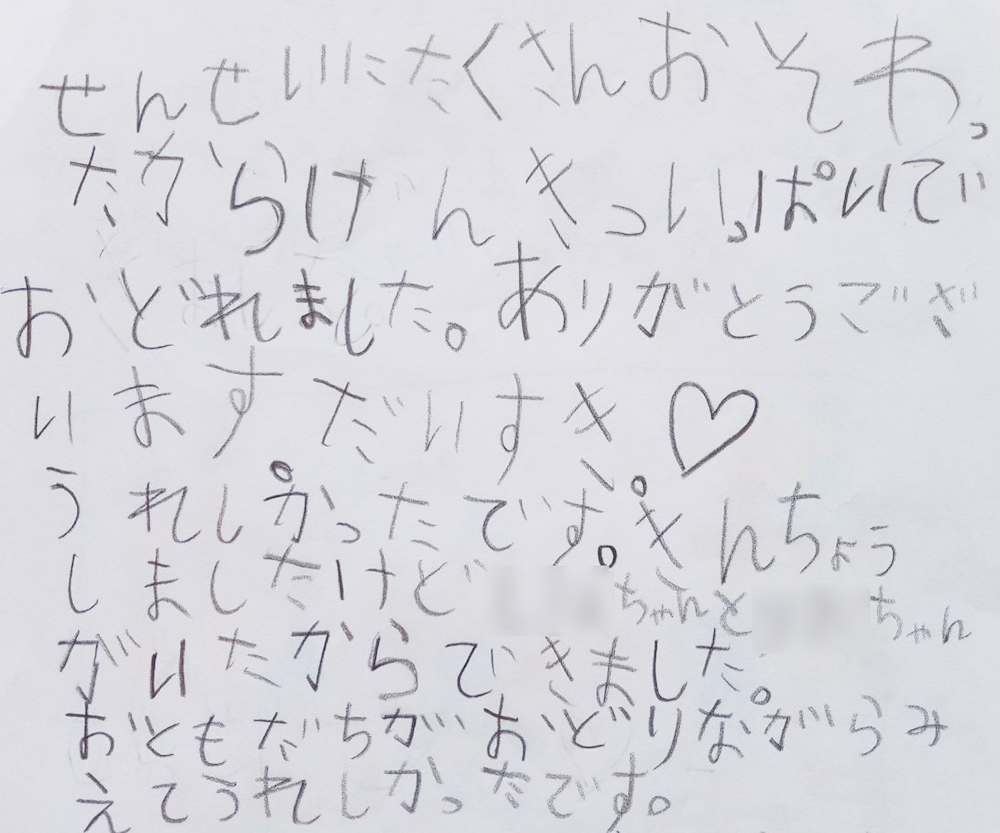 せんせいにたくさんおそわっ
たからげんきいっぱいで
おどれました。ありがとうござ
います。だいすき♡。
うれしかったです。きんちょう
しましたけど ちゃんと ちゃん
がいたからできました。
おともだちがおどりながらみ
えてうれしかったです。